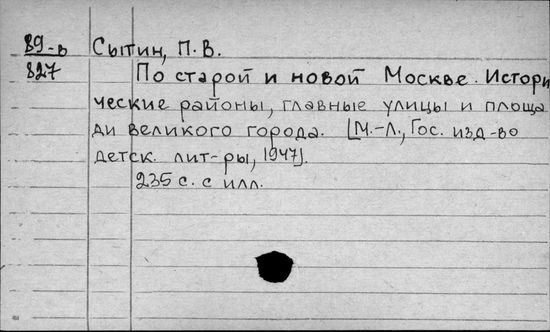 89-в Сытин, П.В.
827 По старой и новой Москве. Истори
ческие районы, главные улицы и площа
ди великого города. [М.-Л., Гос. изд-во
детск. лит-ры, 1947].
235 с. с илл.